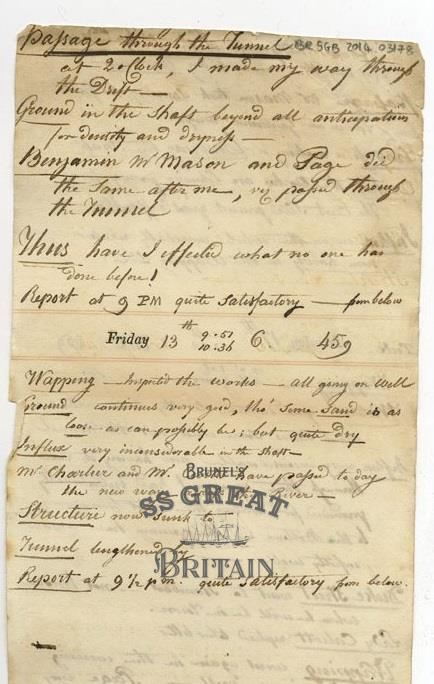 Passage through the Tunnel BRSGB 2014 03178
at 2 oClock, I made my way through
the Drift —
Ground in the Shaft beyond all anticipations
for density and dryness —
Benjamin Mr Mason and Page did
the same after me, viz passed through
the Tunnel
Thus have I effected what no one has
done before!
Report at 9 PM quite satisfactory — from below
Friday 13th 9.51 10.36 6. 459
Wapping — Inspected the works — all going on well
Ground continues very good, tho' some sand is as
loose as can possibly be; but quite dry
Influx very inconsiderable in the Shaft —
Mr Charlier and Mr. have passed to day
the new way River —
Structure now sunk to —
Tunnel lengthened by
Report at 9 1/2 pm. quite satisfactory from below.
BRUNEL'S
SS GREAT
BRITAIN